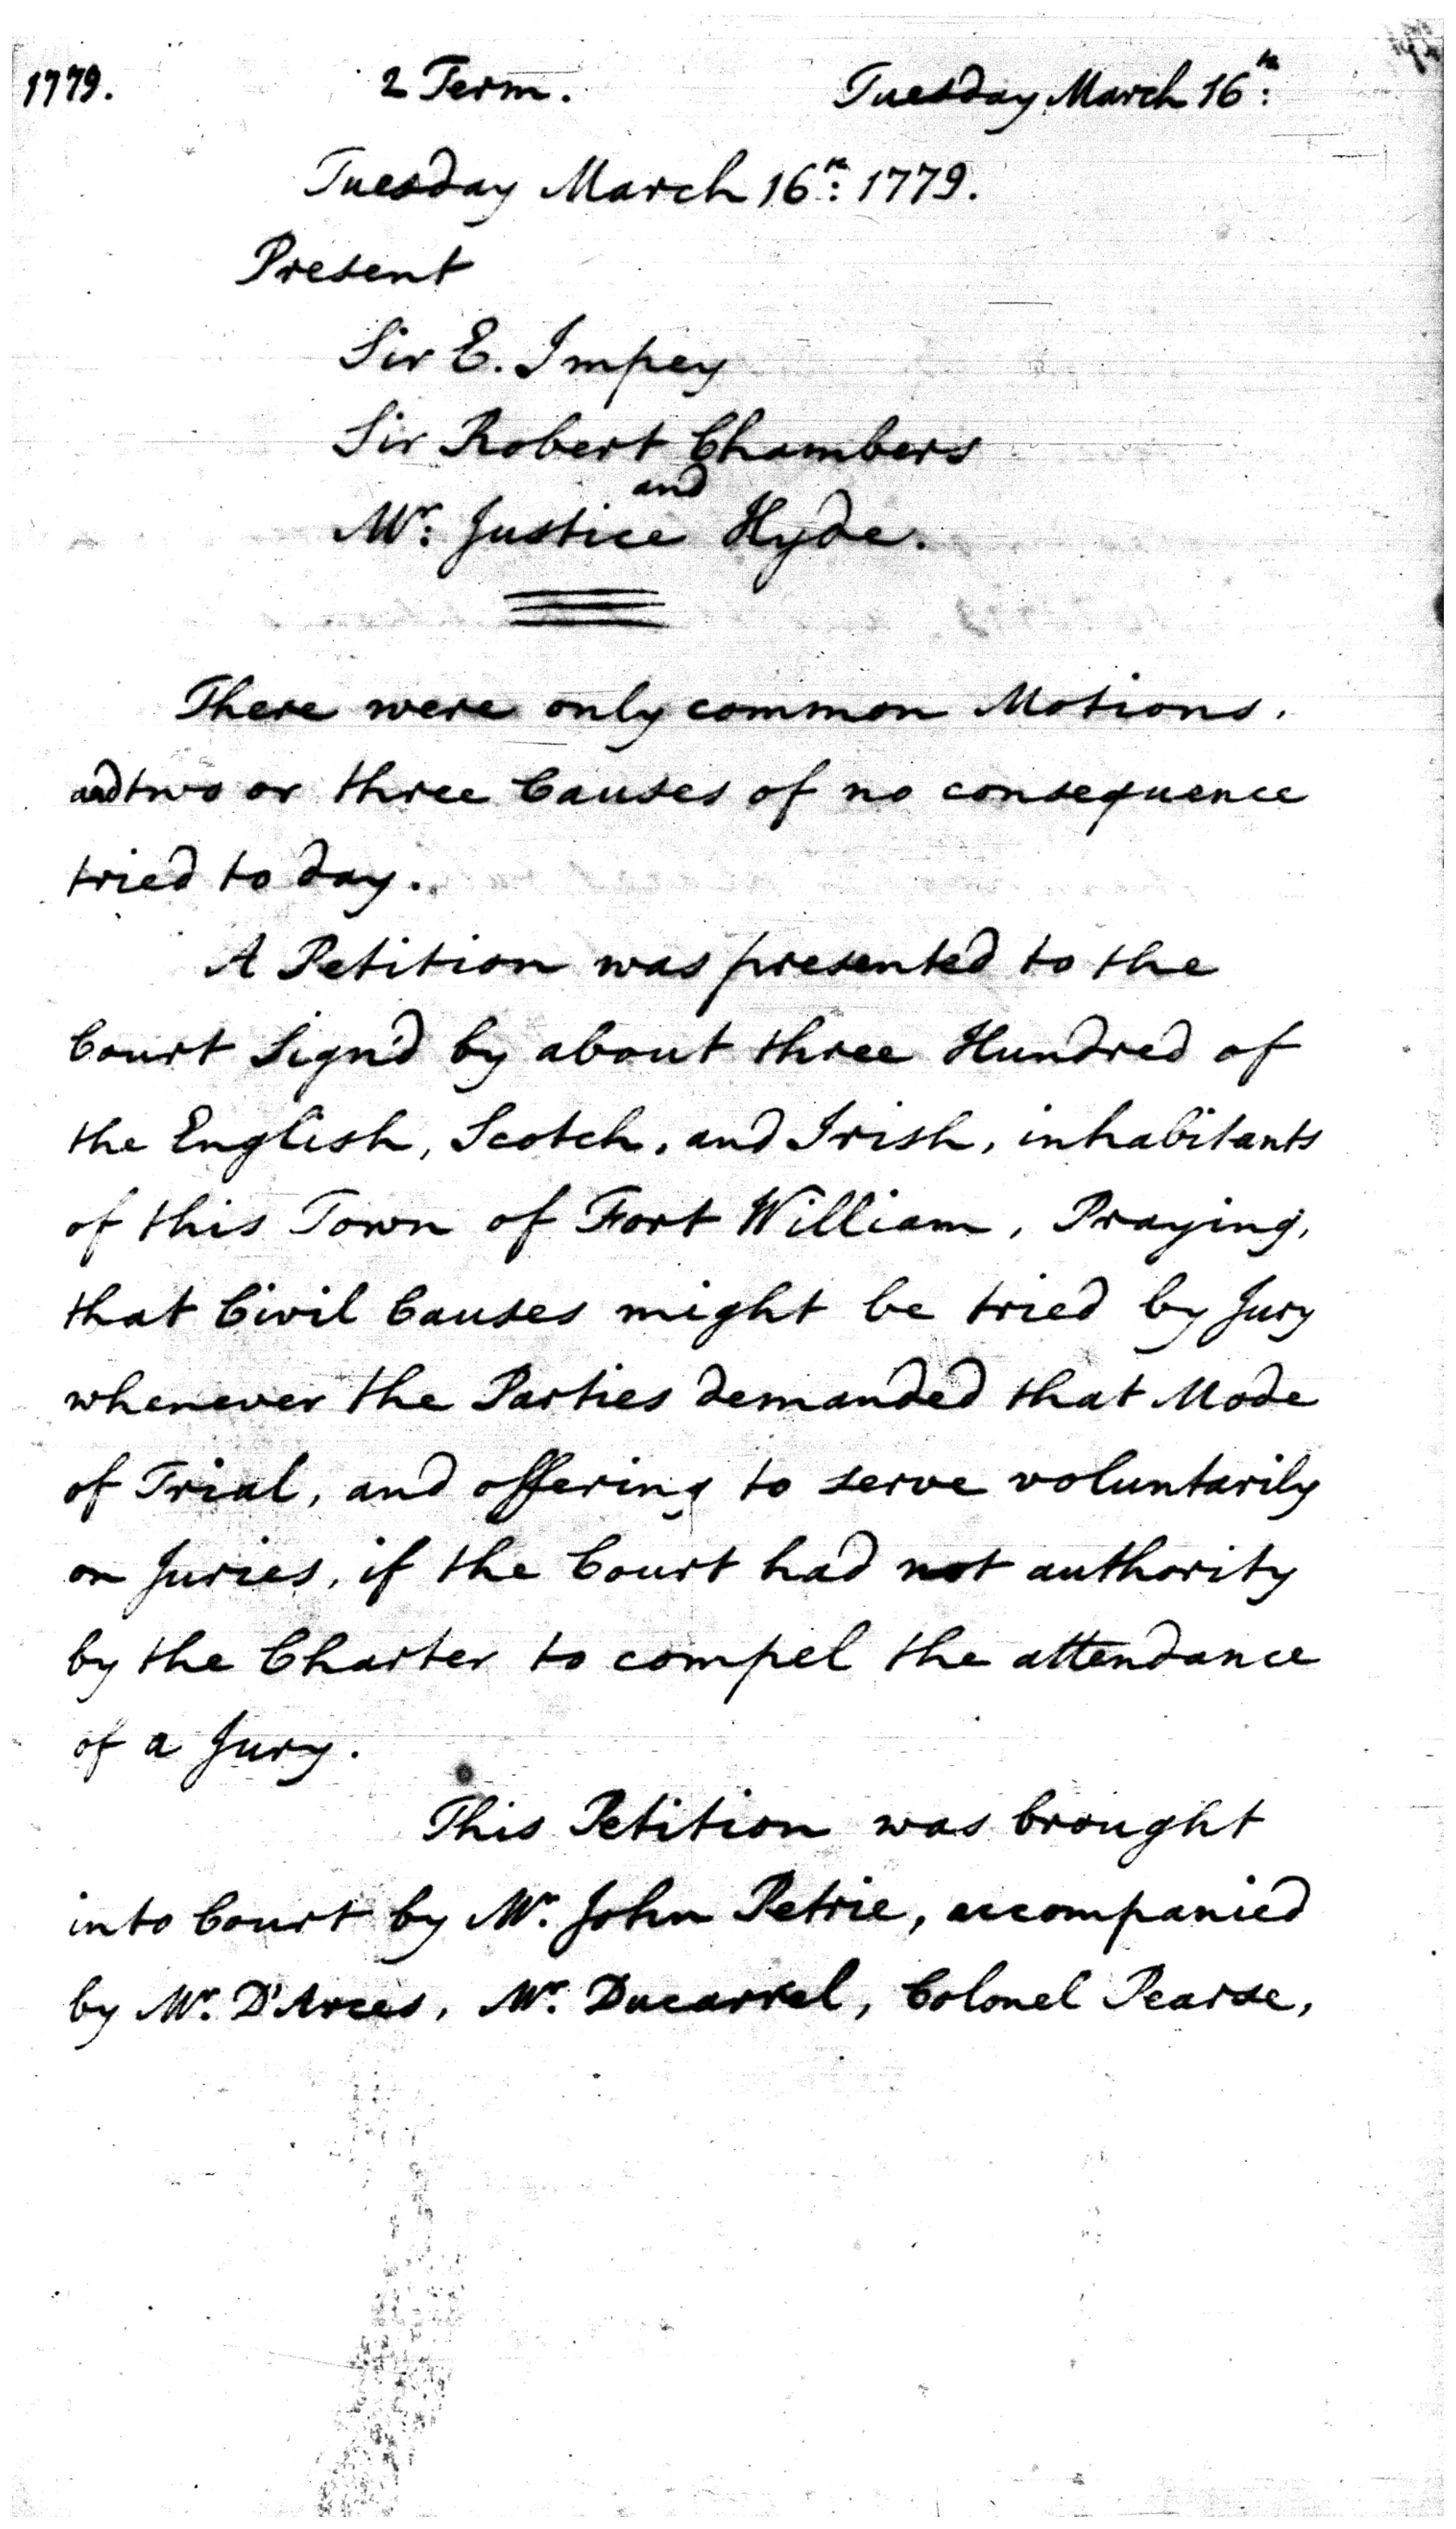 1779. 2 Term. Tuesday March 16th:
Tuesday March 16th: 1779.
Present
Sir E. Impey
Sir Robert Chambers
and
Mr: Justice Hyde.
There were only common Motions,
and two or three Causes of no consequence
tried to day.
A Petition was presented to the
Court Sign'd by about three Hundred of
the English, Scotch, and Irish, inhabitants
of this Town of Fort William, Praying,
that Civil Causes might be tried by Jury
whenever the Parties demanded that Mode
of Trial, and offering to serve voluntarily
on Juries, if the Court had not authority
by the Charter to compel the attendance
of a Jury.
This Petition was brought
into Court by Mr. John Petrie, accompanied
by Mr. D'Arces, Mr. Ducarrel, Colonel Pearse,